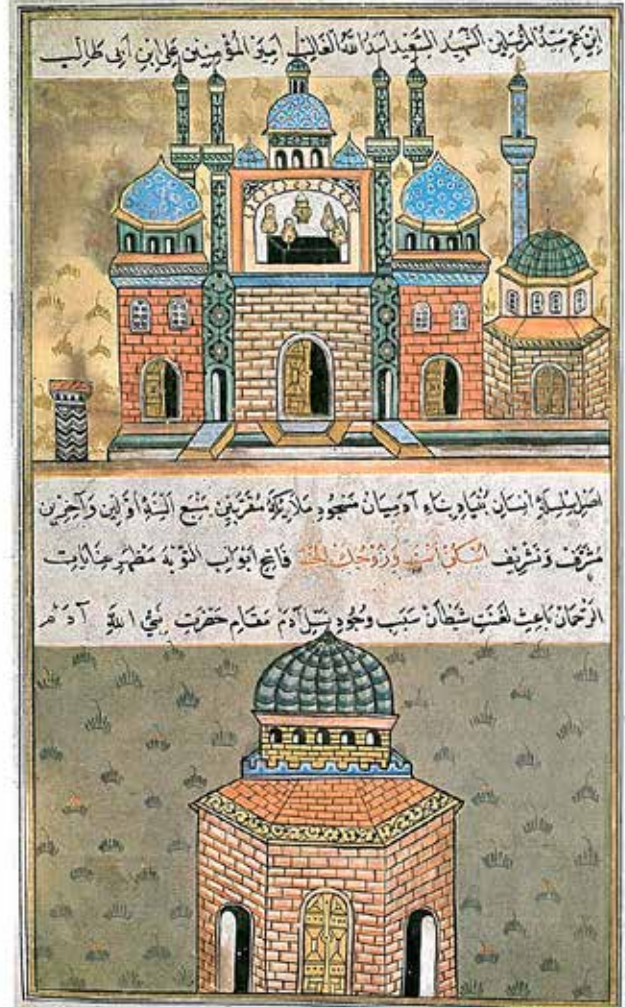 ابن عم سيد المرسلين الشهيد السعيد اسد الله الغالب امير المؤمنين على ابن ابى طالب
اصل سلسلهٔ انسان بنياد بناء آدميان مسجود ملائكهٔ مقربين منبع السنهٔ اولين وآخرين
مشرف وتشريف اسكن انت وزوجك الجنة فاتح ابواب التوبه مظهر عنايات
الرحمان باعث لعنت شيطان سبب وجود نسل آدم مقام حضرت نبى الله آدم